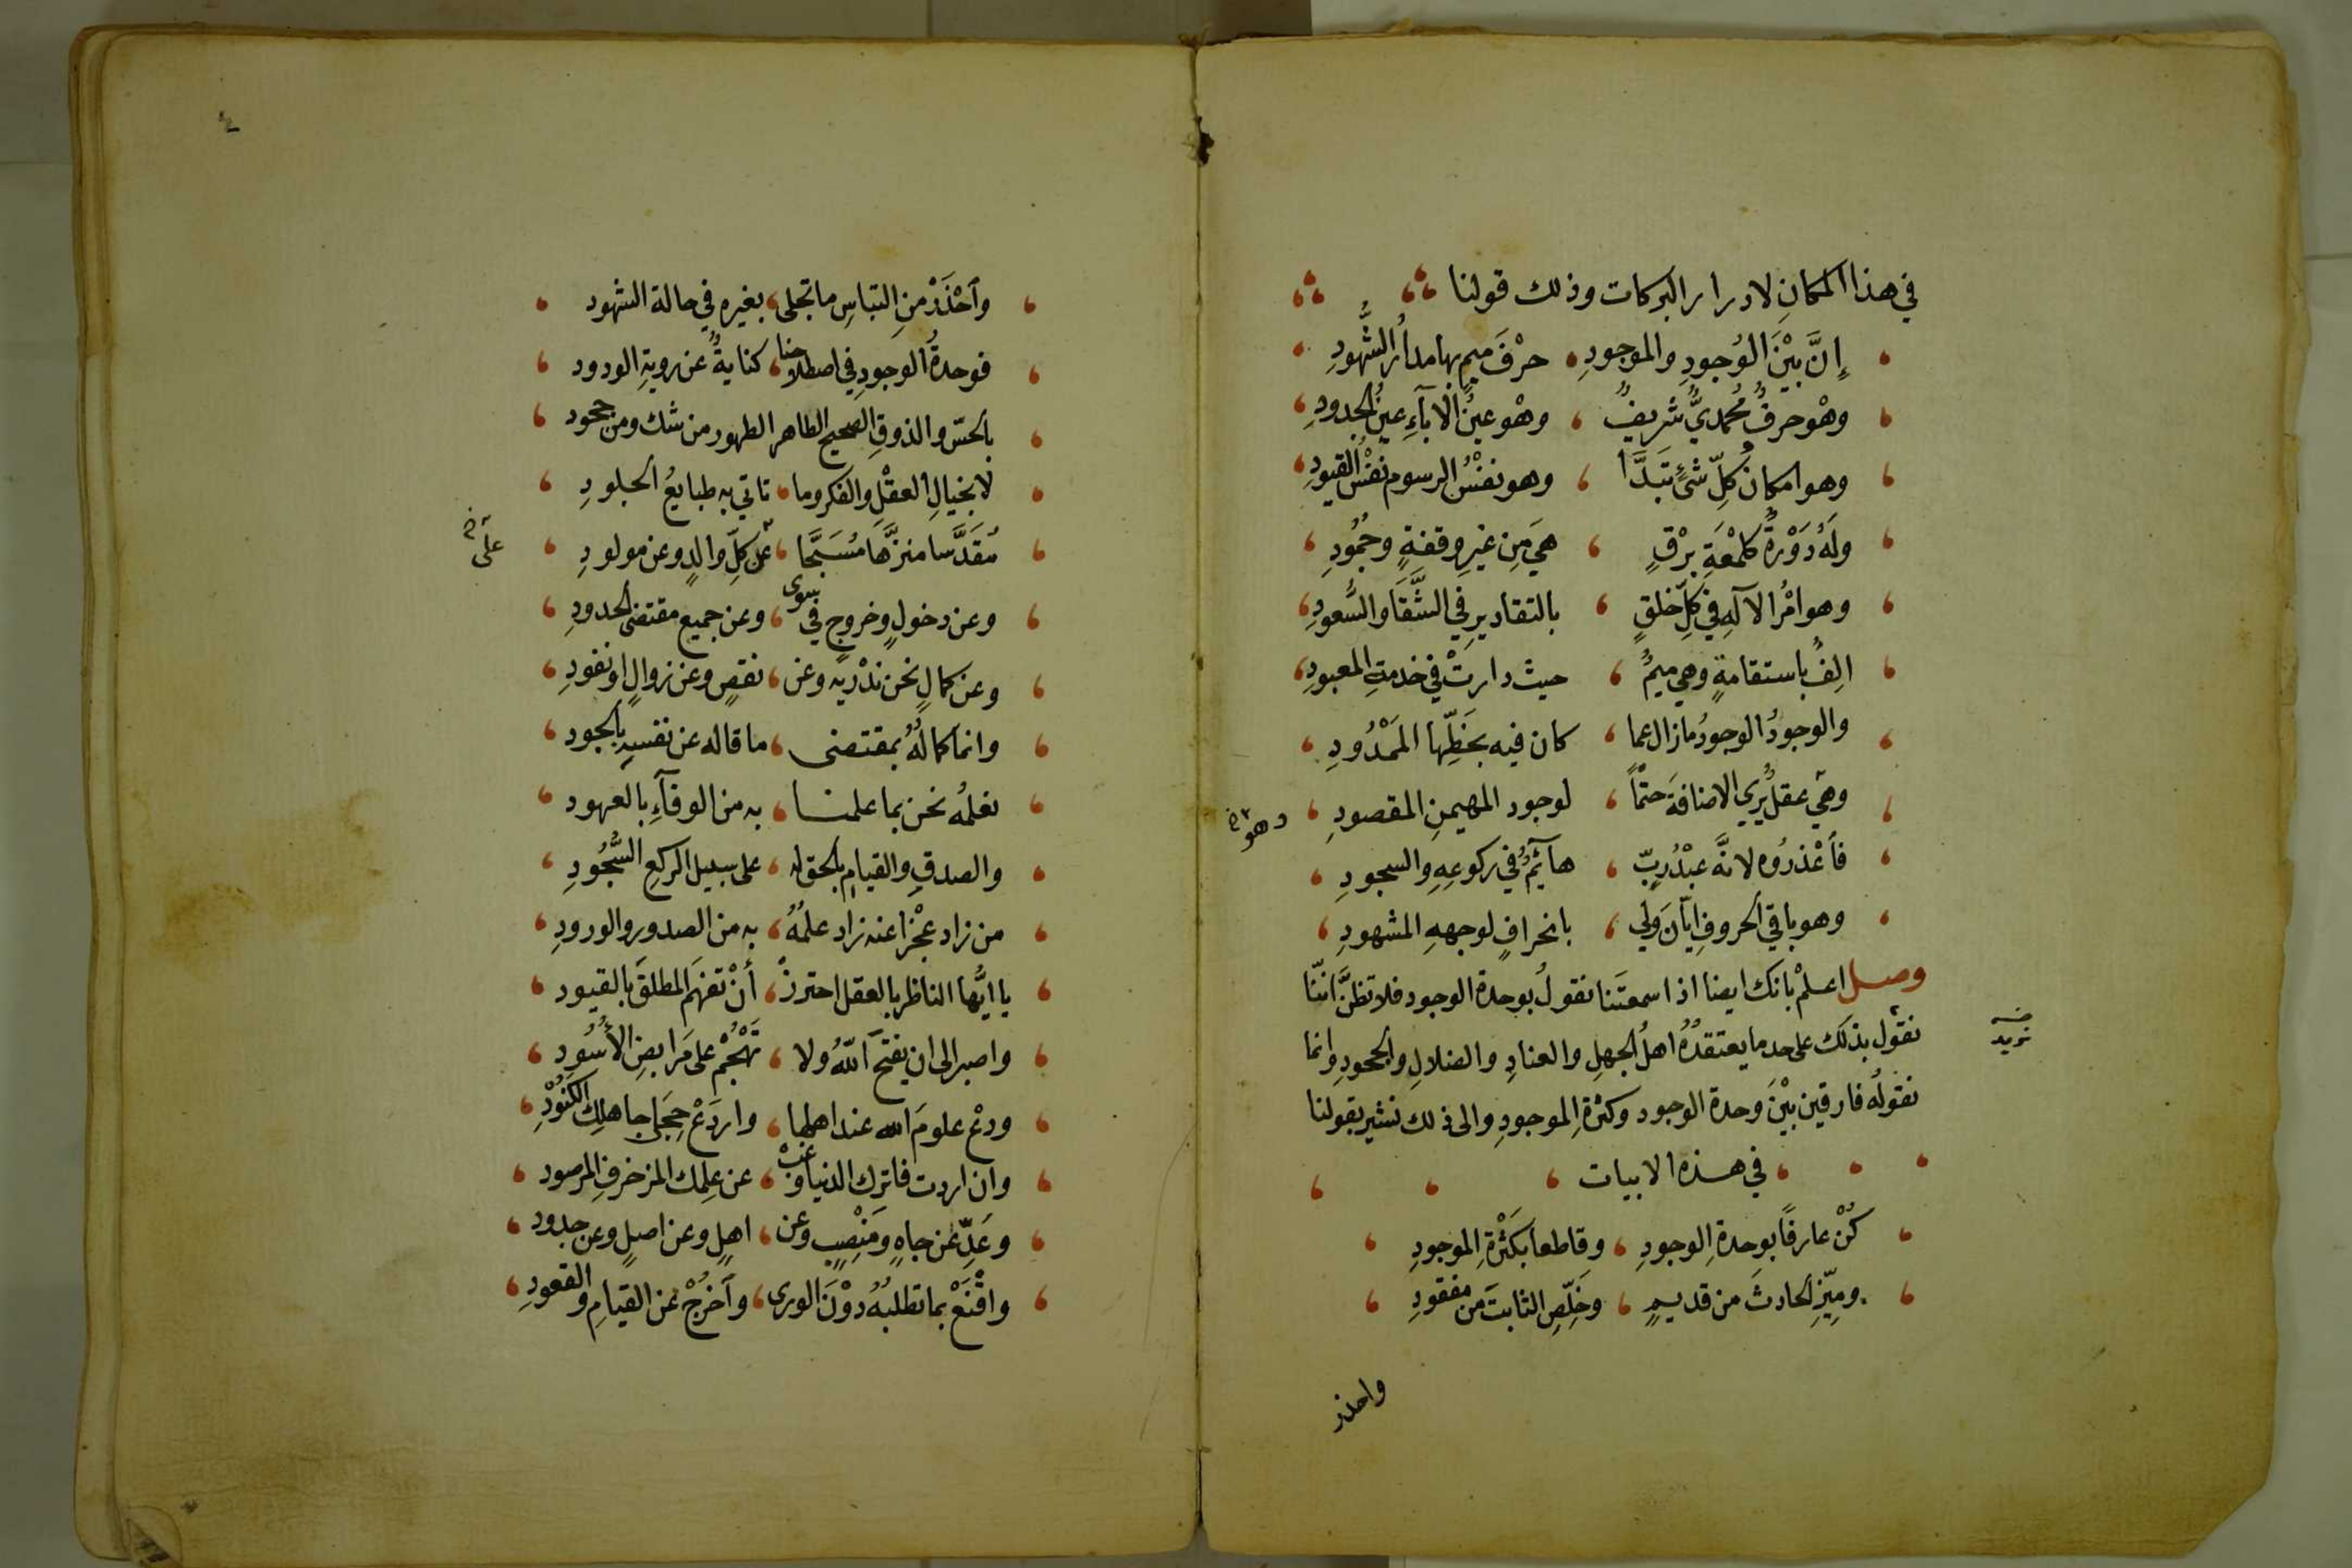 في هذا المكانِ لادرار البركات وذلك قولنا
إنَّ بيْنَ الوُجودِ والموجودِ حرْفَ ميمٍ بها مدارُ الشُّهودِ
وهْوَ حرفٌ مُحمديٌّ شريفٌ وهْوَ عينُ الآبآءِ عينُ الجدودِ
وهو امكانُ كلِّ شئٍ تَبَدَّا وهو نفسُ الرسوم نفْسُ القيودِ
ولَهُ دَوْرةٌ كلمْعَةِ برْقٍ هيَ مِن غيرِ وقفةٍ وجُمُودِ
وهو امْرُ الآلهِ في كلِّ خلقٍ بالتقاديرِ في الشَّقَا والسُّعودِ
الِفٌ باستقامةٍ وهي ميمٌ حيث دارتْ في خدمةِ المعبودِ
والوجودُ الوجودُ مازال عما كان فيه بحَظِّها المَمْدُودِ
وهي عقلٌ يُري الاضافةَ حتْماً لوجود المهيمنِ المقصودِ
وهو خ
فاَعْذرُوه لانَّه عبْدُ ربٍّ هآئمٌ في ركوعِهِ والسجودِ
وهو باقي الحروفِ ايّآنَ وَلي بانحرافٍ لوجههِ المشهودِ
وصل اعلمْ بانك ايضا اذا سمعتَنا نقولُ بوحدة الوجود فلا تظنَّ اننّا
نقول بذلك على حد ما يعتقدُهُ اهلُ الجهلِ والعنادِ والضلالِ والجحودِ وانما
نريد
نقولُه فارقين بيْنَ وحدة الوجود وكثرةِ الموجودِ والى ذلك نشير بقولنا
في هذه الابيات
كُنْ عارفًا بوحدةِ الوجودِ وقاطعا بكَثْرةِ الموجودِ
وميِّزِ الحادثَ من قديمٍ وخَلِّصِ الثابتَ من مفقودِ
واحذر
٤
وآحْذَرْ منِ التباسِ ما تجلى بغيره في حالة الشهود
فوحدةُ الوجودِ في اصطلاحنا كنايةٌ عن رويةِ الودود
بالحسّ والذوقِ الصحيح الطاهر الطهور من شك ومن جحود
لا بخيالِ العقْلِ والفكر وما تاتي به طبايعُ الجلودِ
مُقَدَّسا منزَّهًا مُسَبَّحًا عن كلِّ والدٍ وعن مولودِ
على خ
وعن دخولٍ وخروجٍ في سوى وعن جميع مقتضى الحدودِ
وعن كمالٍ نحن ندْريه وعن نقصٍ وعن زوالٍ او نفودِ
وانما كمالُهُ بمقتضى ما قاله عن نفسِهِ بالجود
نعلمُه نحن بما علمنا به من الوفآءِ بالعهود
والصدقِ والقيامِ بالحق له على سبيل الركعِ السُّجُودِ
من زاد عجْزا عنه زاد علمُهُ به من الصدور والورودِ
يا ايُّها الناظر بالعقل احترزْ أنْ تفهَم المطلقَ بالقيود
واصبر الى ان يفتحَ اللّهُ ولا تَهْجُمْ على مَرابضِ الأُسُودِ
ودعْ علومَ الله عند اهلها واردَعْ حِجَى جاهلِك الكَنُوْدِ
وان اردت فاترك الدنيا وغبْ عن عِلمِك المزخرفِ المرصود
وعَدِّ عن جاهٍ ومَنْصِبٍ وعن اهلٍ وعن اصلٍ وعن جدود
واقْنَعْ بما تطلبُهُ دوْنَ الورى وآخرُجْ عن القيامِ والقعودِ